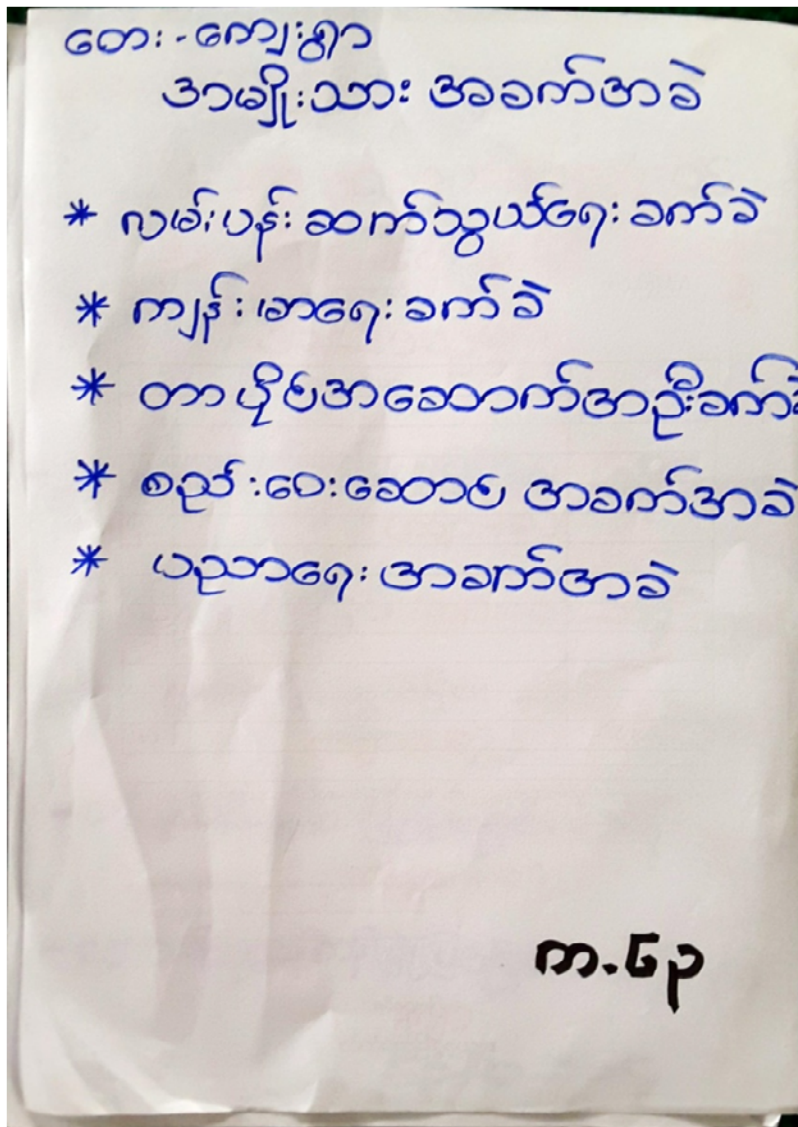 တေး-ကျေးရွာ
အမျိုးသား အခက်အခဲ
* လမ်းပန်းဆက်သွယ်ရေး ခက်ခဲ
* ကျန်းမာရေး ခက်ခဲ
* တာပိုင်အဆောက်အဦးခက်ခဲ
* စည်းဝေးဆောင် အခက်အခဲ
* ပညာရေး အခက်အခဲ